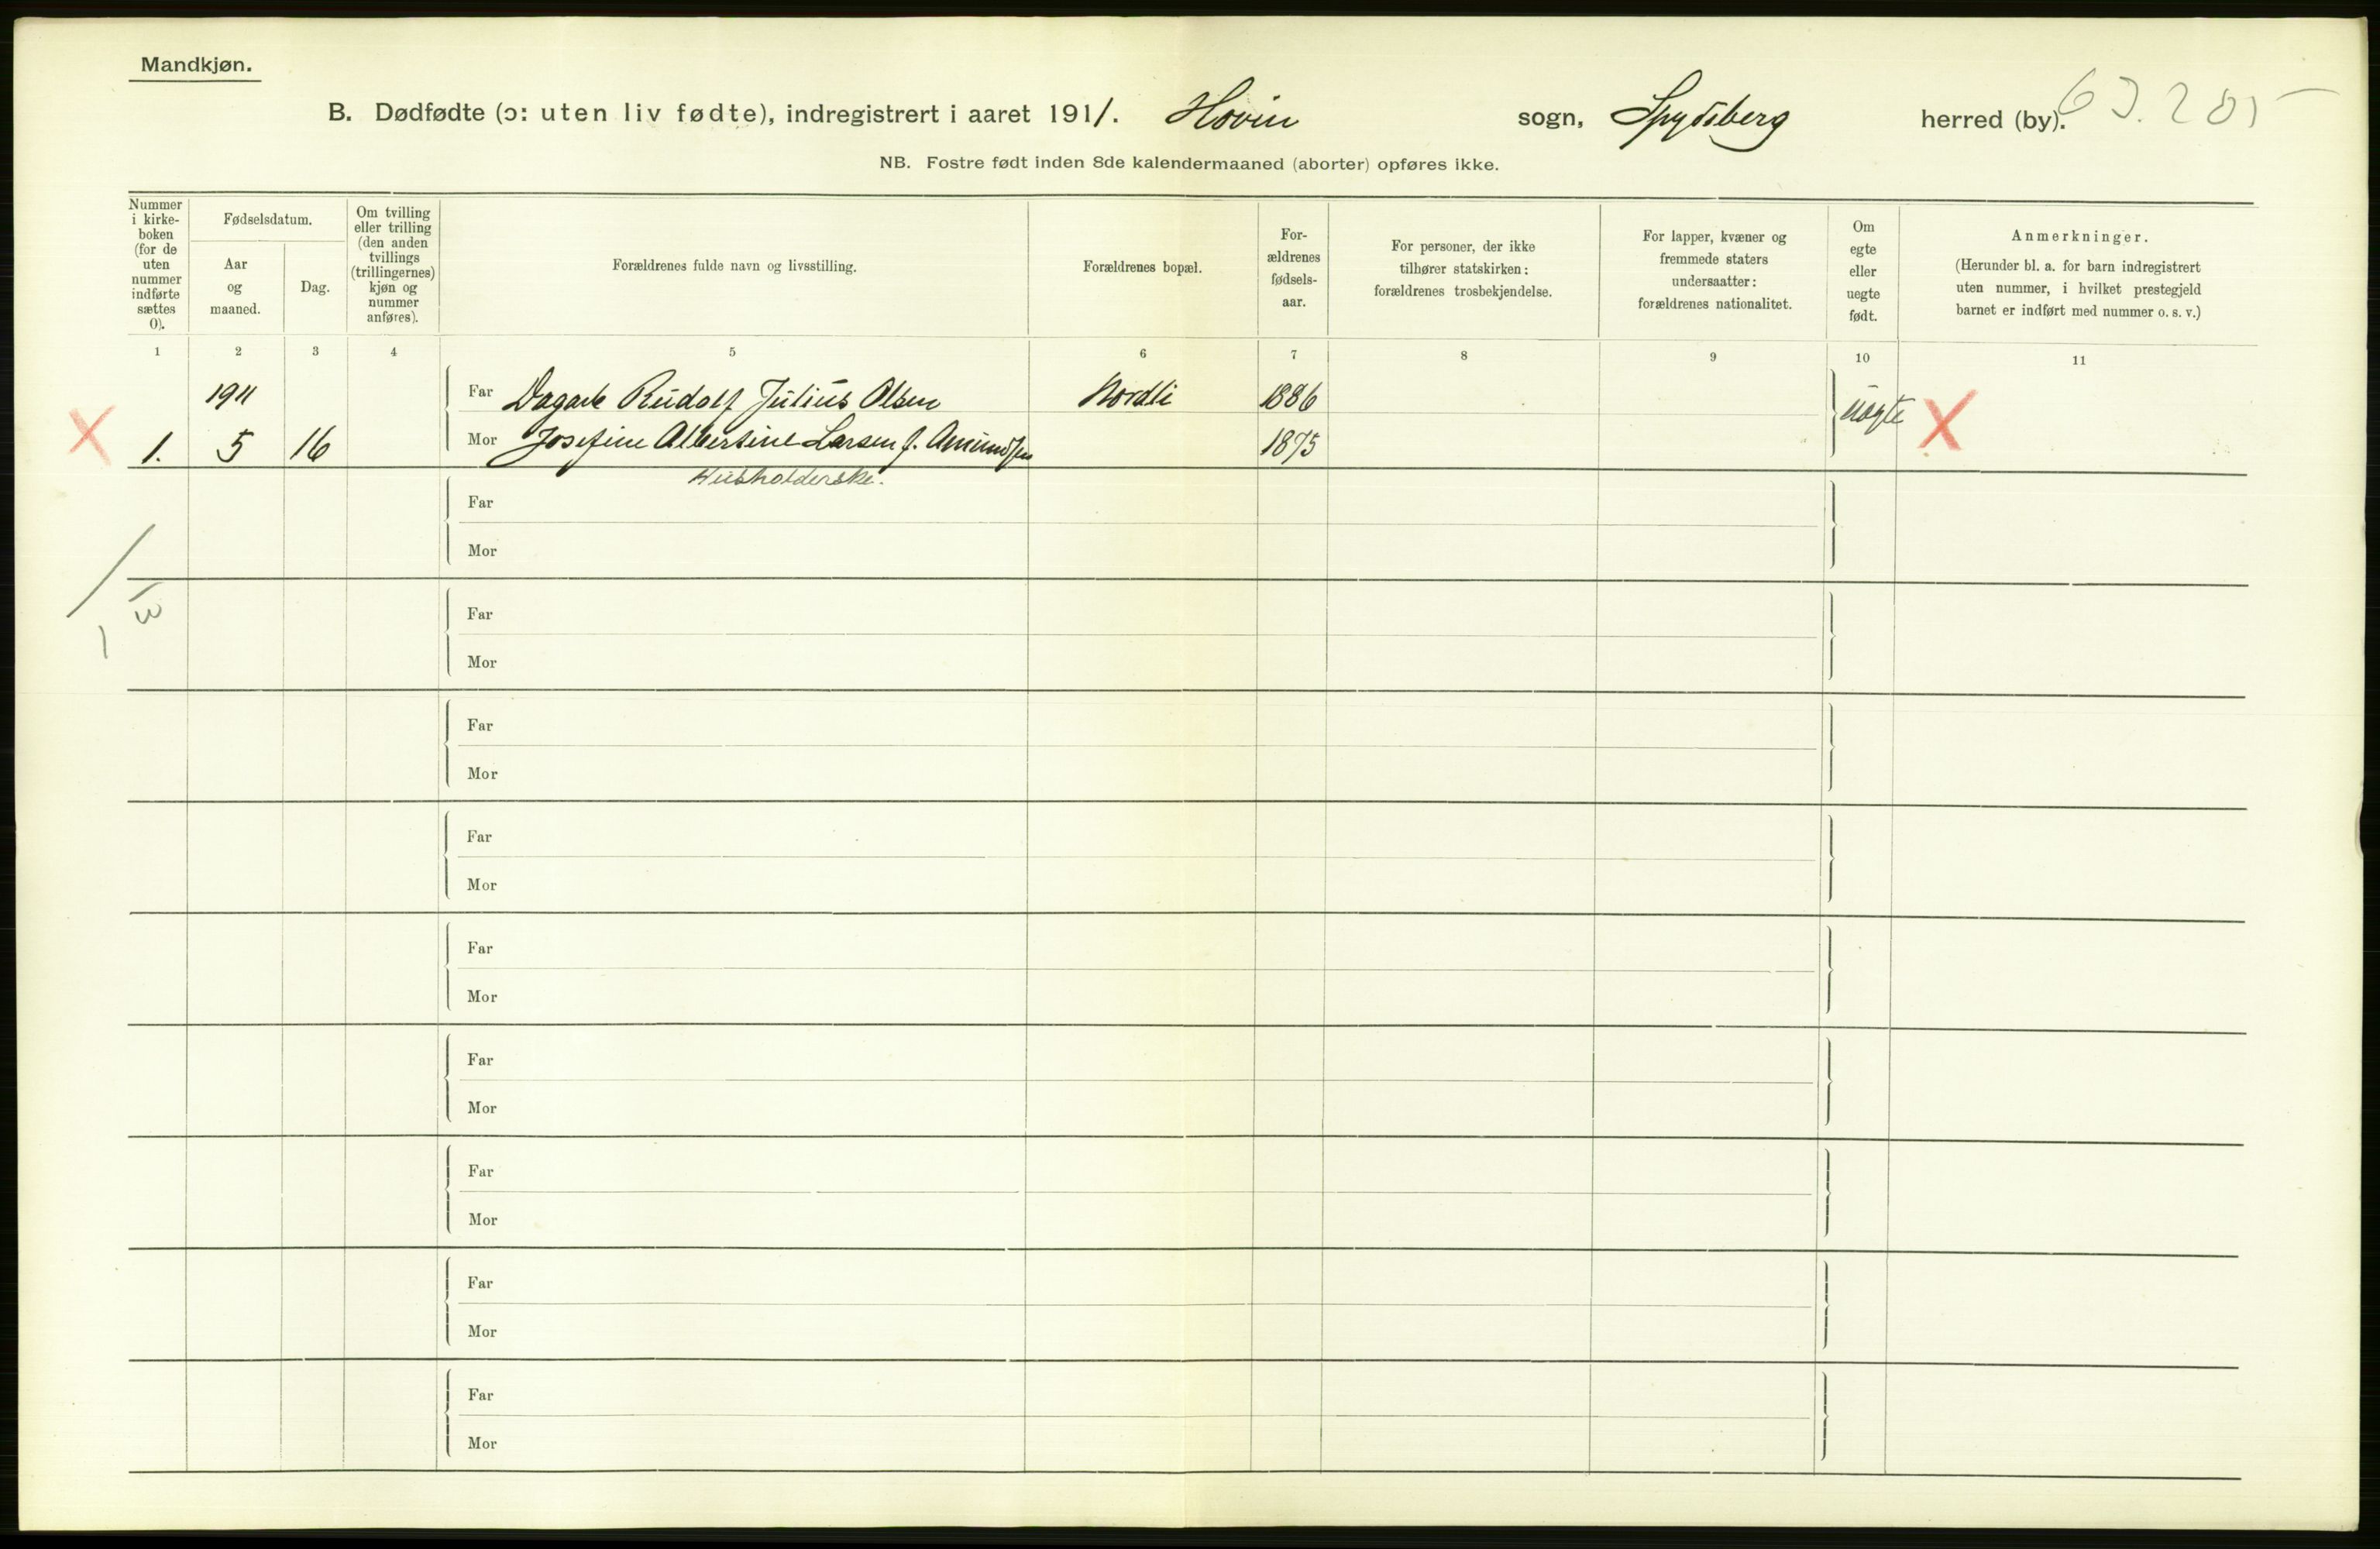 Mandkjøn.
B. Dødfødte (ɔ: uten liv fødte), indregistrert i aaret 1911. Hovin sogn, Spydeberg herred (by).
NB. Fostre født inden 8de kalendermaaned (aborter) opføres ikke.
Nummer
i kirke-
boken
(for de
uten
nummer
indførte
sættes
0).
Fødselsdatum.
Aar
og
maaned.
Dag.
Om tvilling
eller trilling
(den anden
tvillings
(trillingernes)
kjøn og
nummer
anføres).
Forældrenes fulde navn og livsstilling.
Forældrenes bopæl.
For-
ældrenes
fødsels-
aar.
For personer, der ikke
tilhører statskirken:
forældrenes trosbekjendelse.
For lapper, kvæner og
fremmede staters
undersaatter:
forældrenes nationalitet.
Om
egte
eller
uegte
født.
Anmerkninger.
(Herunder bl. a. for barn indregistrert
uten nummer, i hvilket prestegjeld
barnet er indført med nummer o. s. v.)
1 2 3 4 5 6 7 8 9 10 11
1911 Far Dagarb Rudolf Julius Olsen Nordli 1886 uegte X
X 1. 5 16 Mor Josefine Albertine Larsen f. Amundsen 1875
Husholderske.
Far
Mor
Far
Mor
Far
Mor
Far
Mor
Far
Mor
Far
Mor
Far
Mor
Far
Mor
Far
Mor